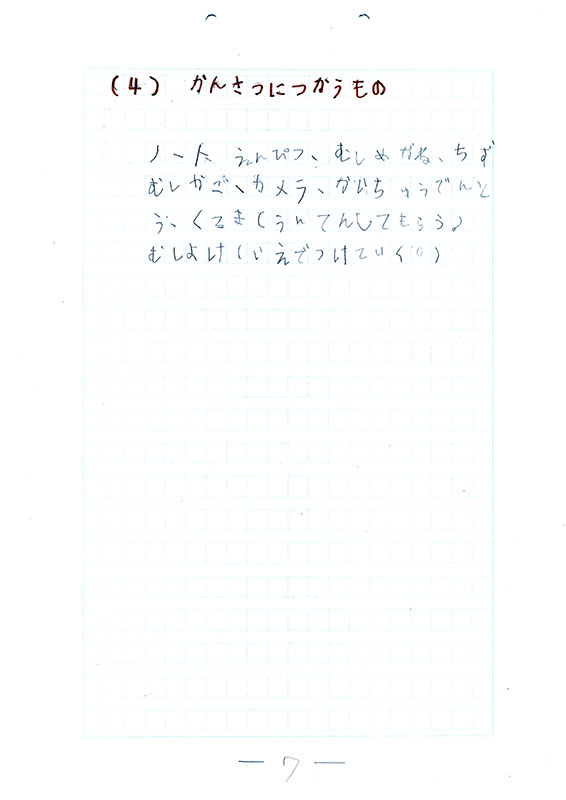 (4) かんさつにつかうもの
ノート えんぴつ、むしめがね、ちず
むしかご、カメラ、かいちゅうでんと
う、くるま(うんてんしてもらう)
むしよけ(いえでつけていく。)
— 7 —